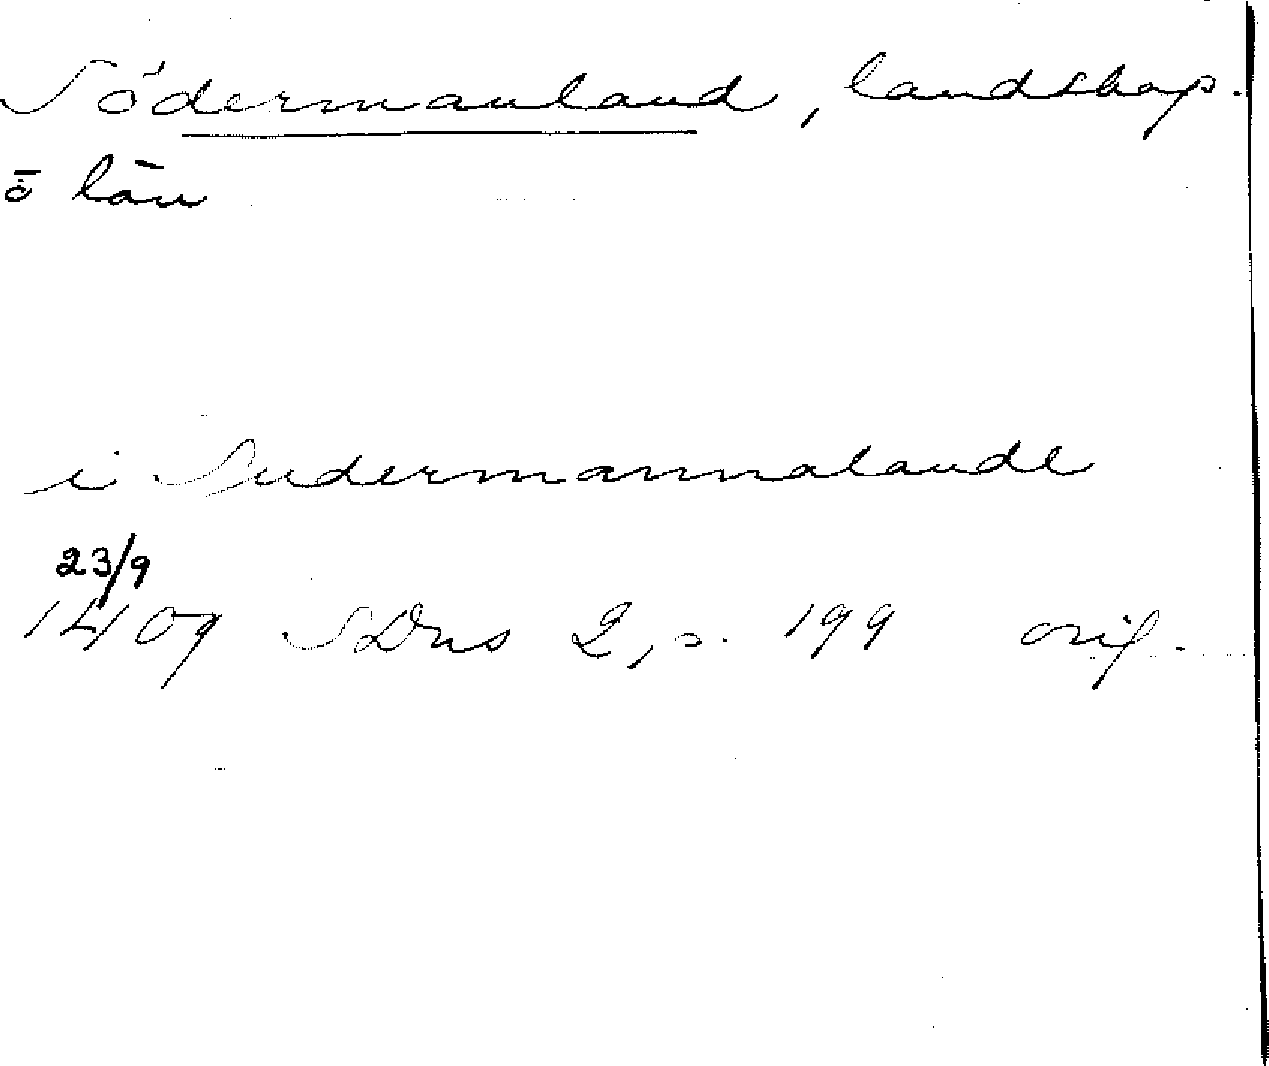 Södermanland, landskap.
o län
i Sudermannalande
23/9
1409 SDns 2, s. 199 orig.